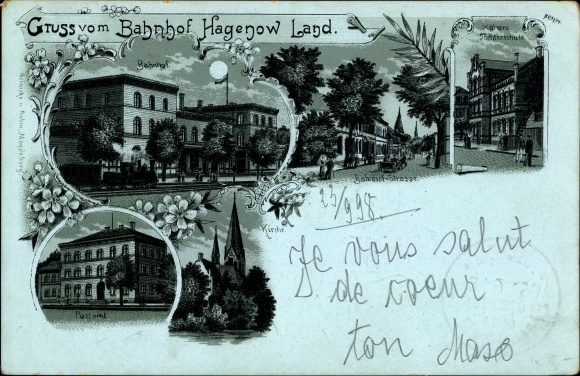 Gruss vom Bahnhof Hagenow Land.
Bahnhof.
Höhere
Töchterschule
Bahnhof-Strasse
Kirche
Postamt
23/9 98.
Je vous salut
de coeur
ton